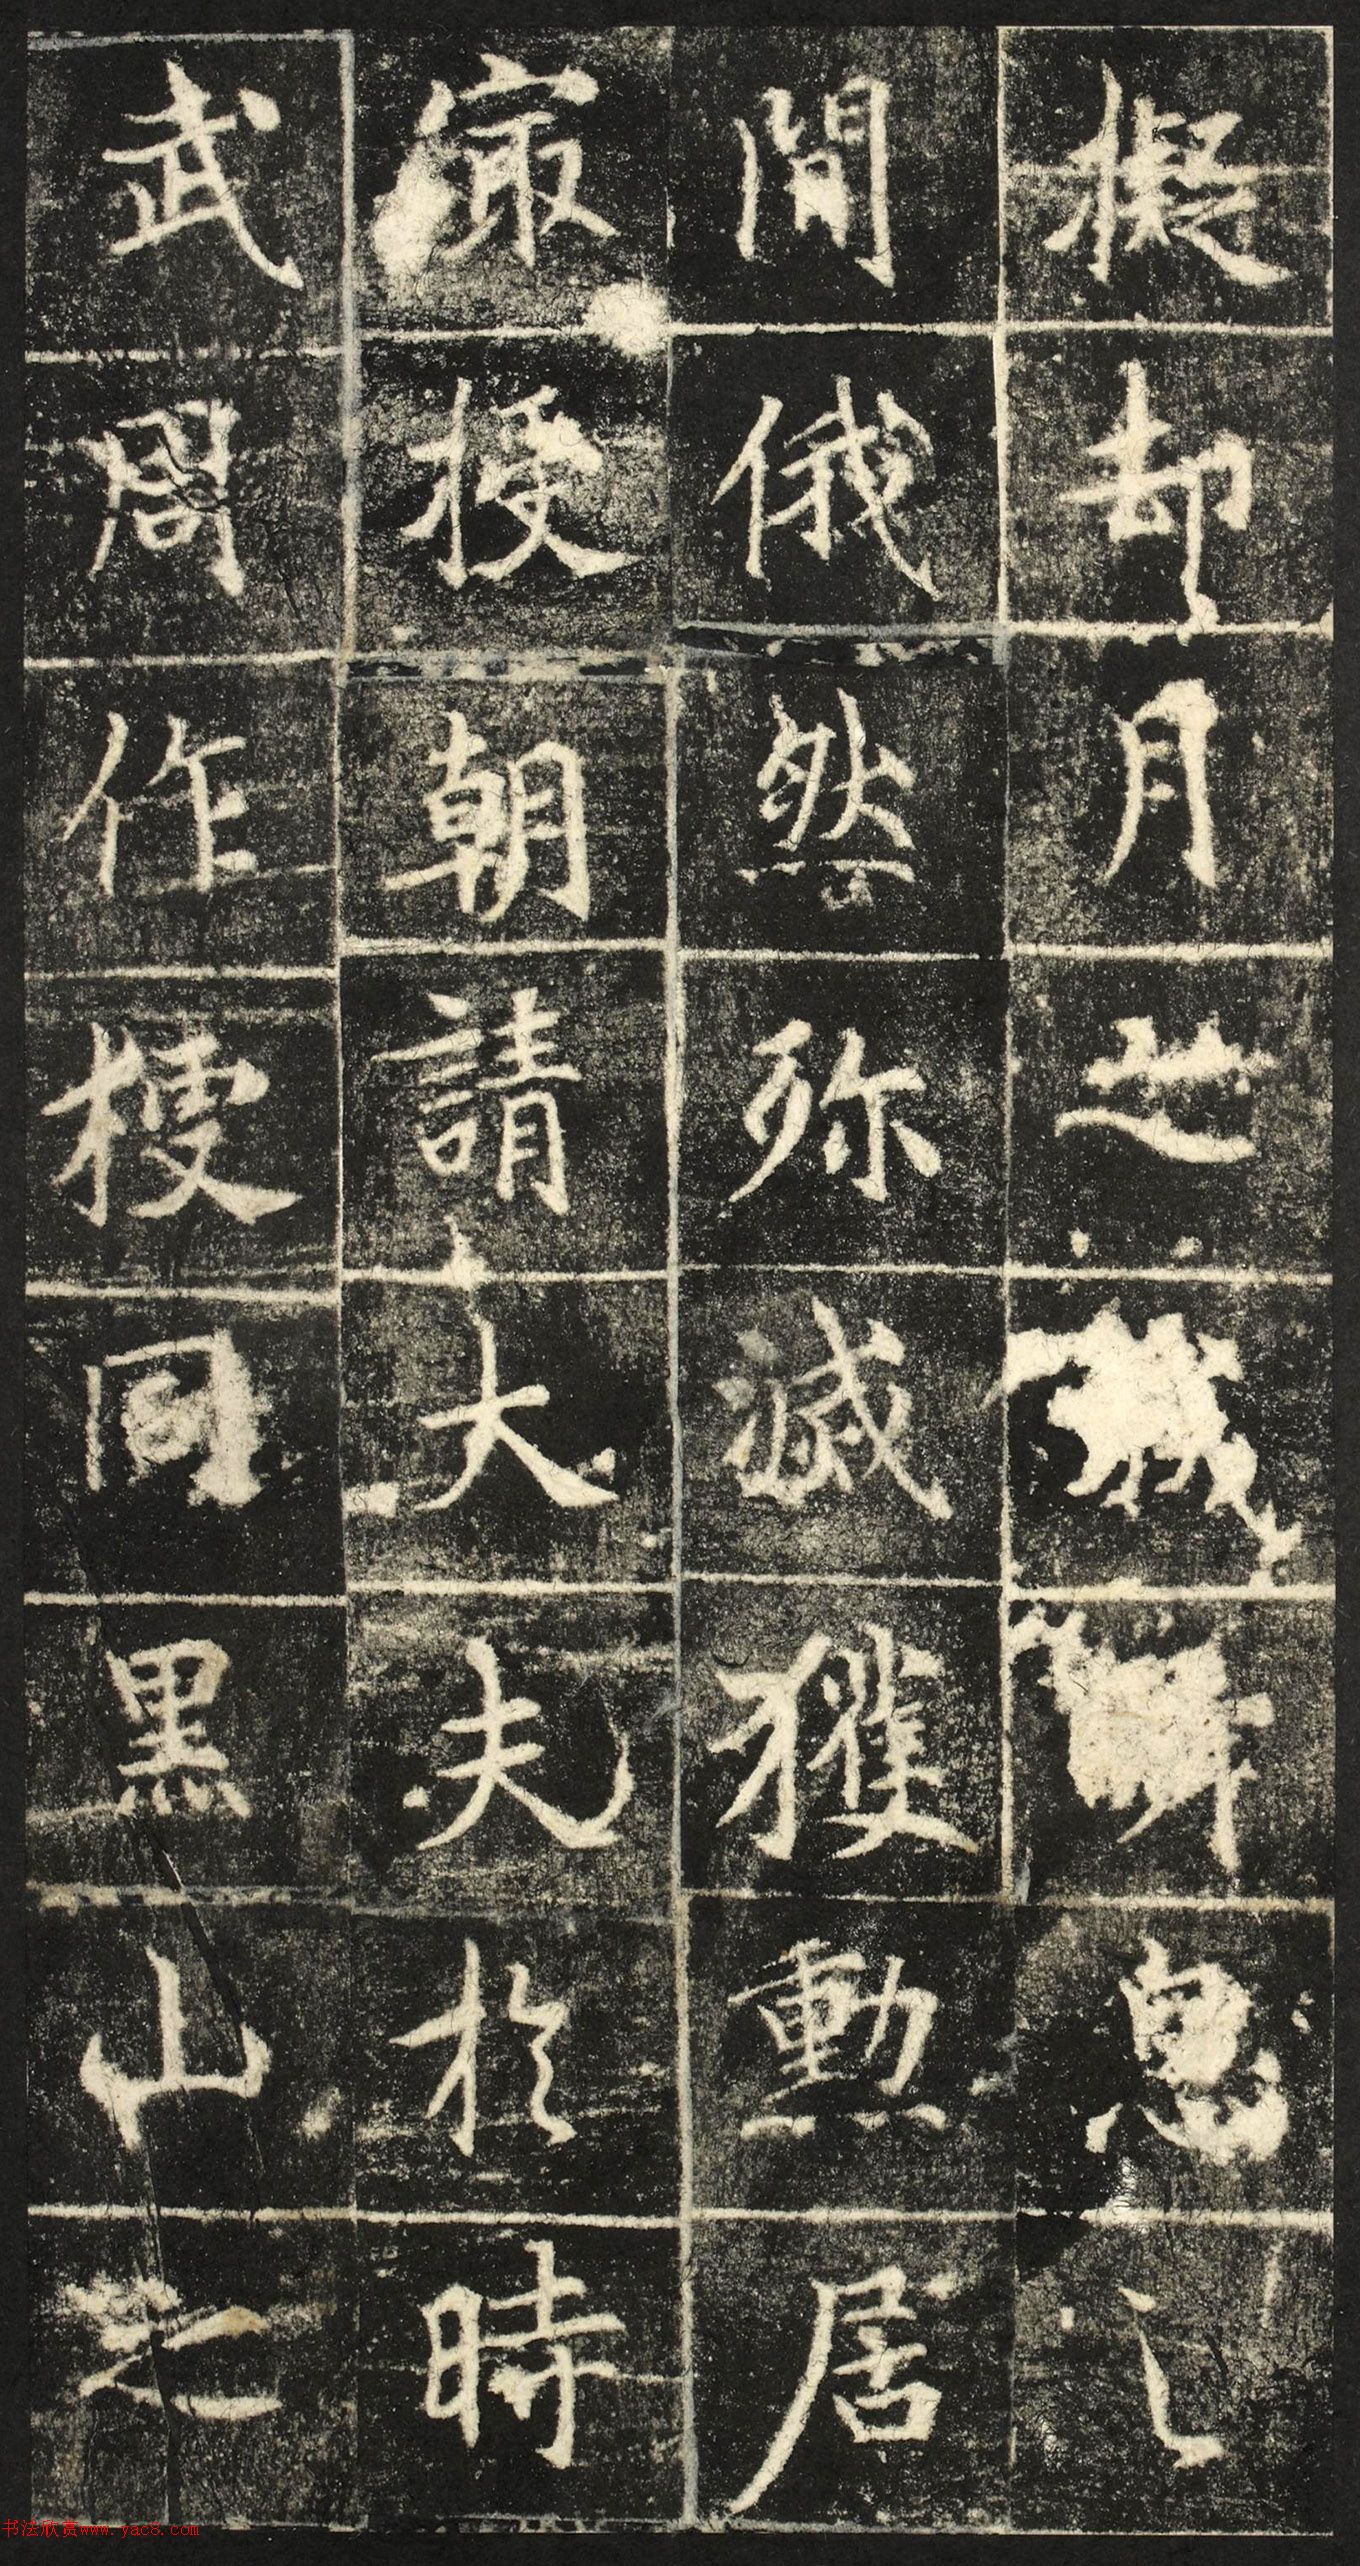 擬却月之
忽之
間俄然殄滅獲勳居
冣授朝請大夫於時
武周作梗同黑山之
书法欣赏www.yac8.com